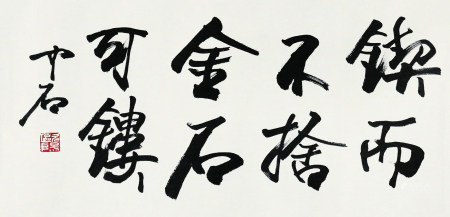 锲而
不捨
金石
可镂
中石